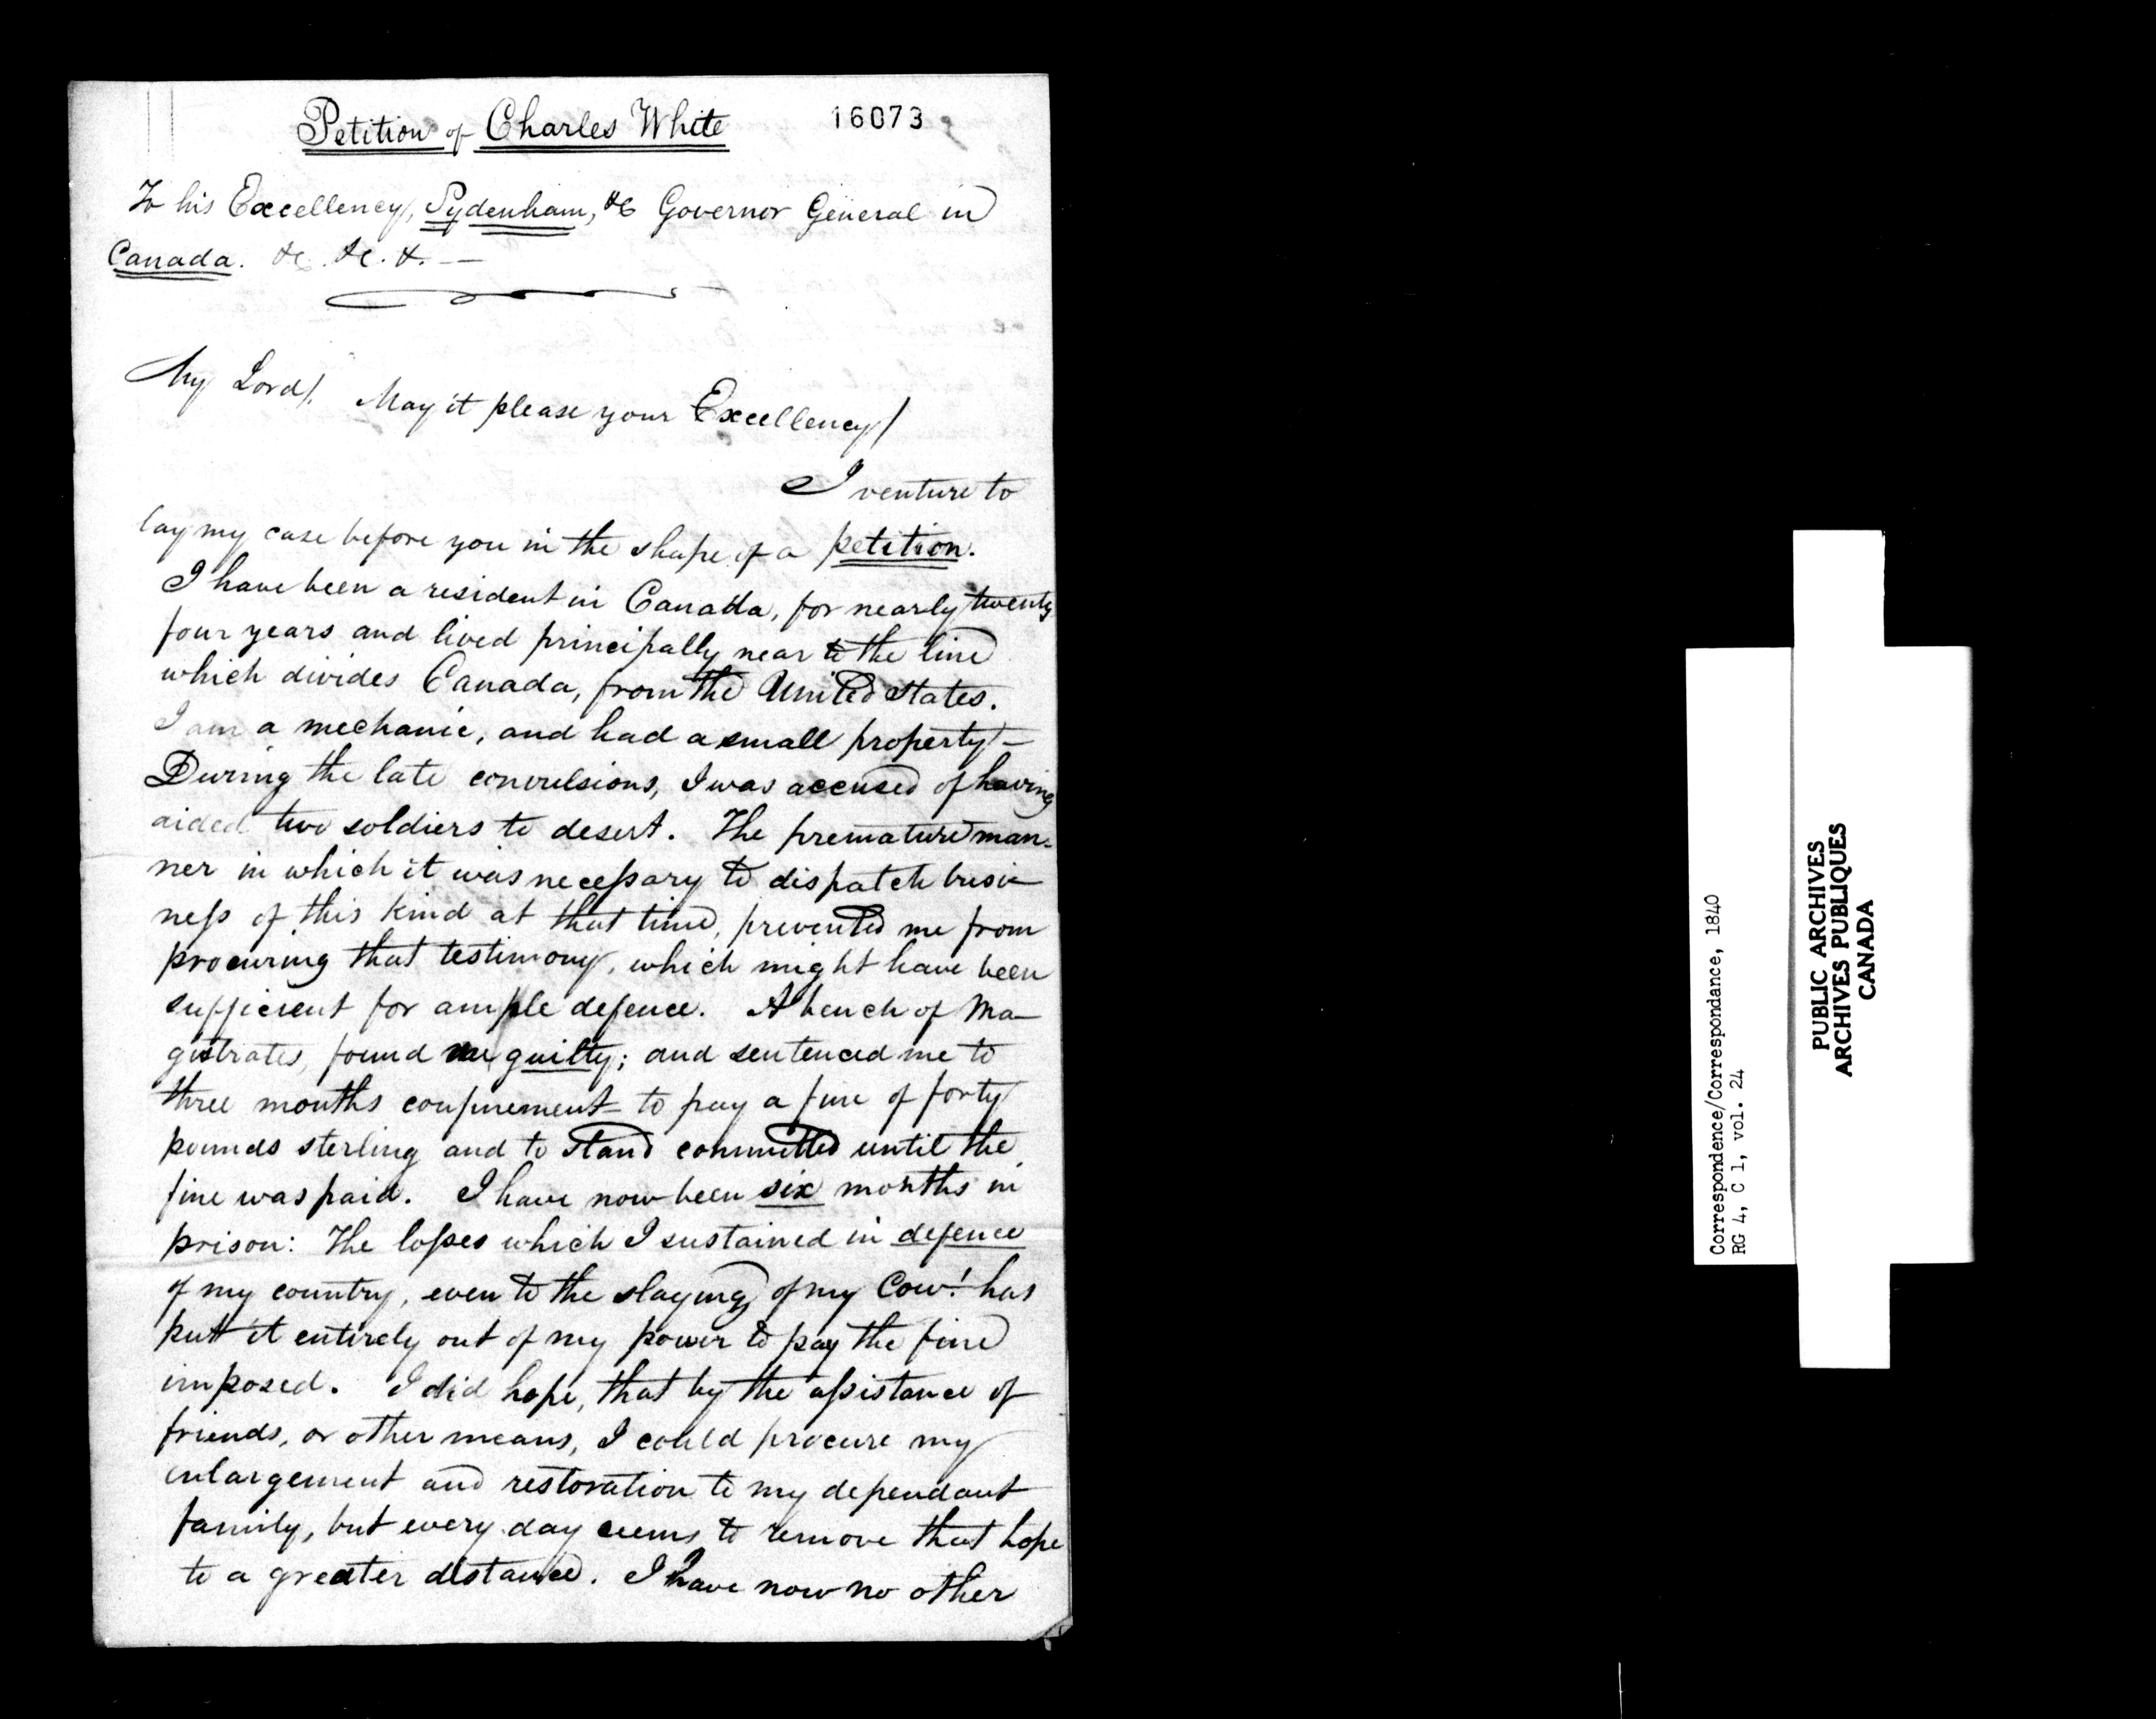 Petition of Charles White
16073
To his Excellency, Sydenham, &c Governor General in
Canada. &c. &c. &. —
My Lord/. May it please your Excellency/
I venture to
lay my case before you in the shape of a petition.
I have been a resident in Canada, for nearly twenty
four years and lived principally near to the line
which divides Canada, from the United States.
I am a mechanic, and had a small property —
During the late convulsions, I was accused of having
aided two soldiers to desert. The premature man-
ner in which it was necessary to dispatch busi-
ness of this kind at that time, prevented me from
procuring that testimony, which might have been
sufficient for ample defence. A bench of Ma-
gistrates, found me guilty; and sentenced me to
three months confinement — to pay a fine of forty
pounds sterling and to stand committed until the
fine was paid. I have now been six months in
prison: The losses which I sustained in defence
of my country, even to the slaying of my Cow! has
putt it entirely out of my power to pay the fine
imposed. I did hope, that by the assistance of
friends, or other means, I could procure my
enlargement and restoration to my dependant
family, but every day seems to remove that hope
to a greater distance. I have now no other
Correspondence/Correspondance, 1840
RG 4, C 1, vol. 24
PUBLIC ARCHIVES
ARCHIVES PUBLIQUES
CANADA